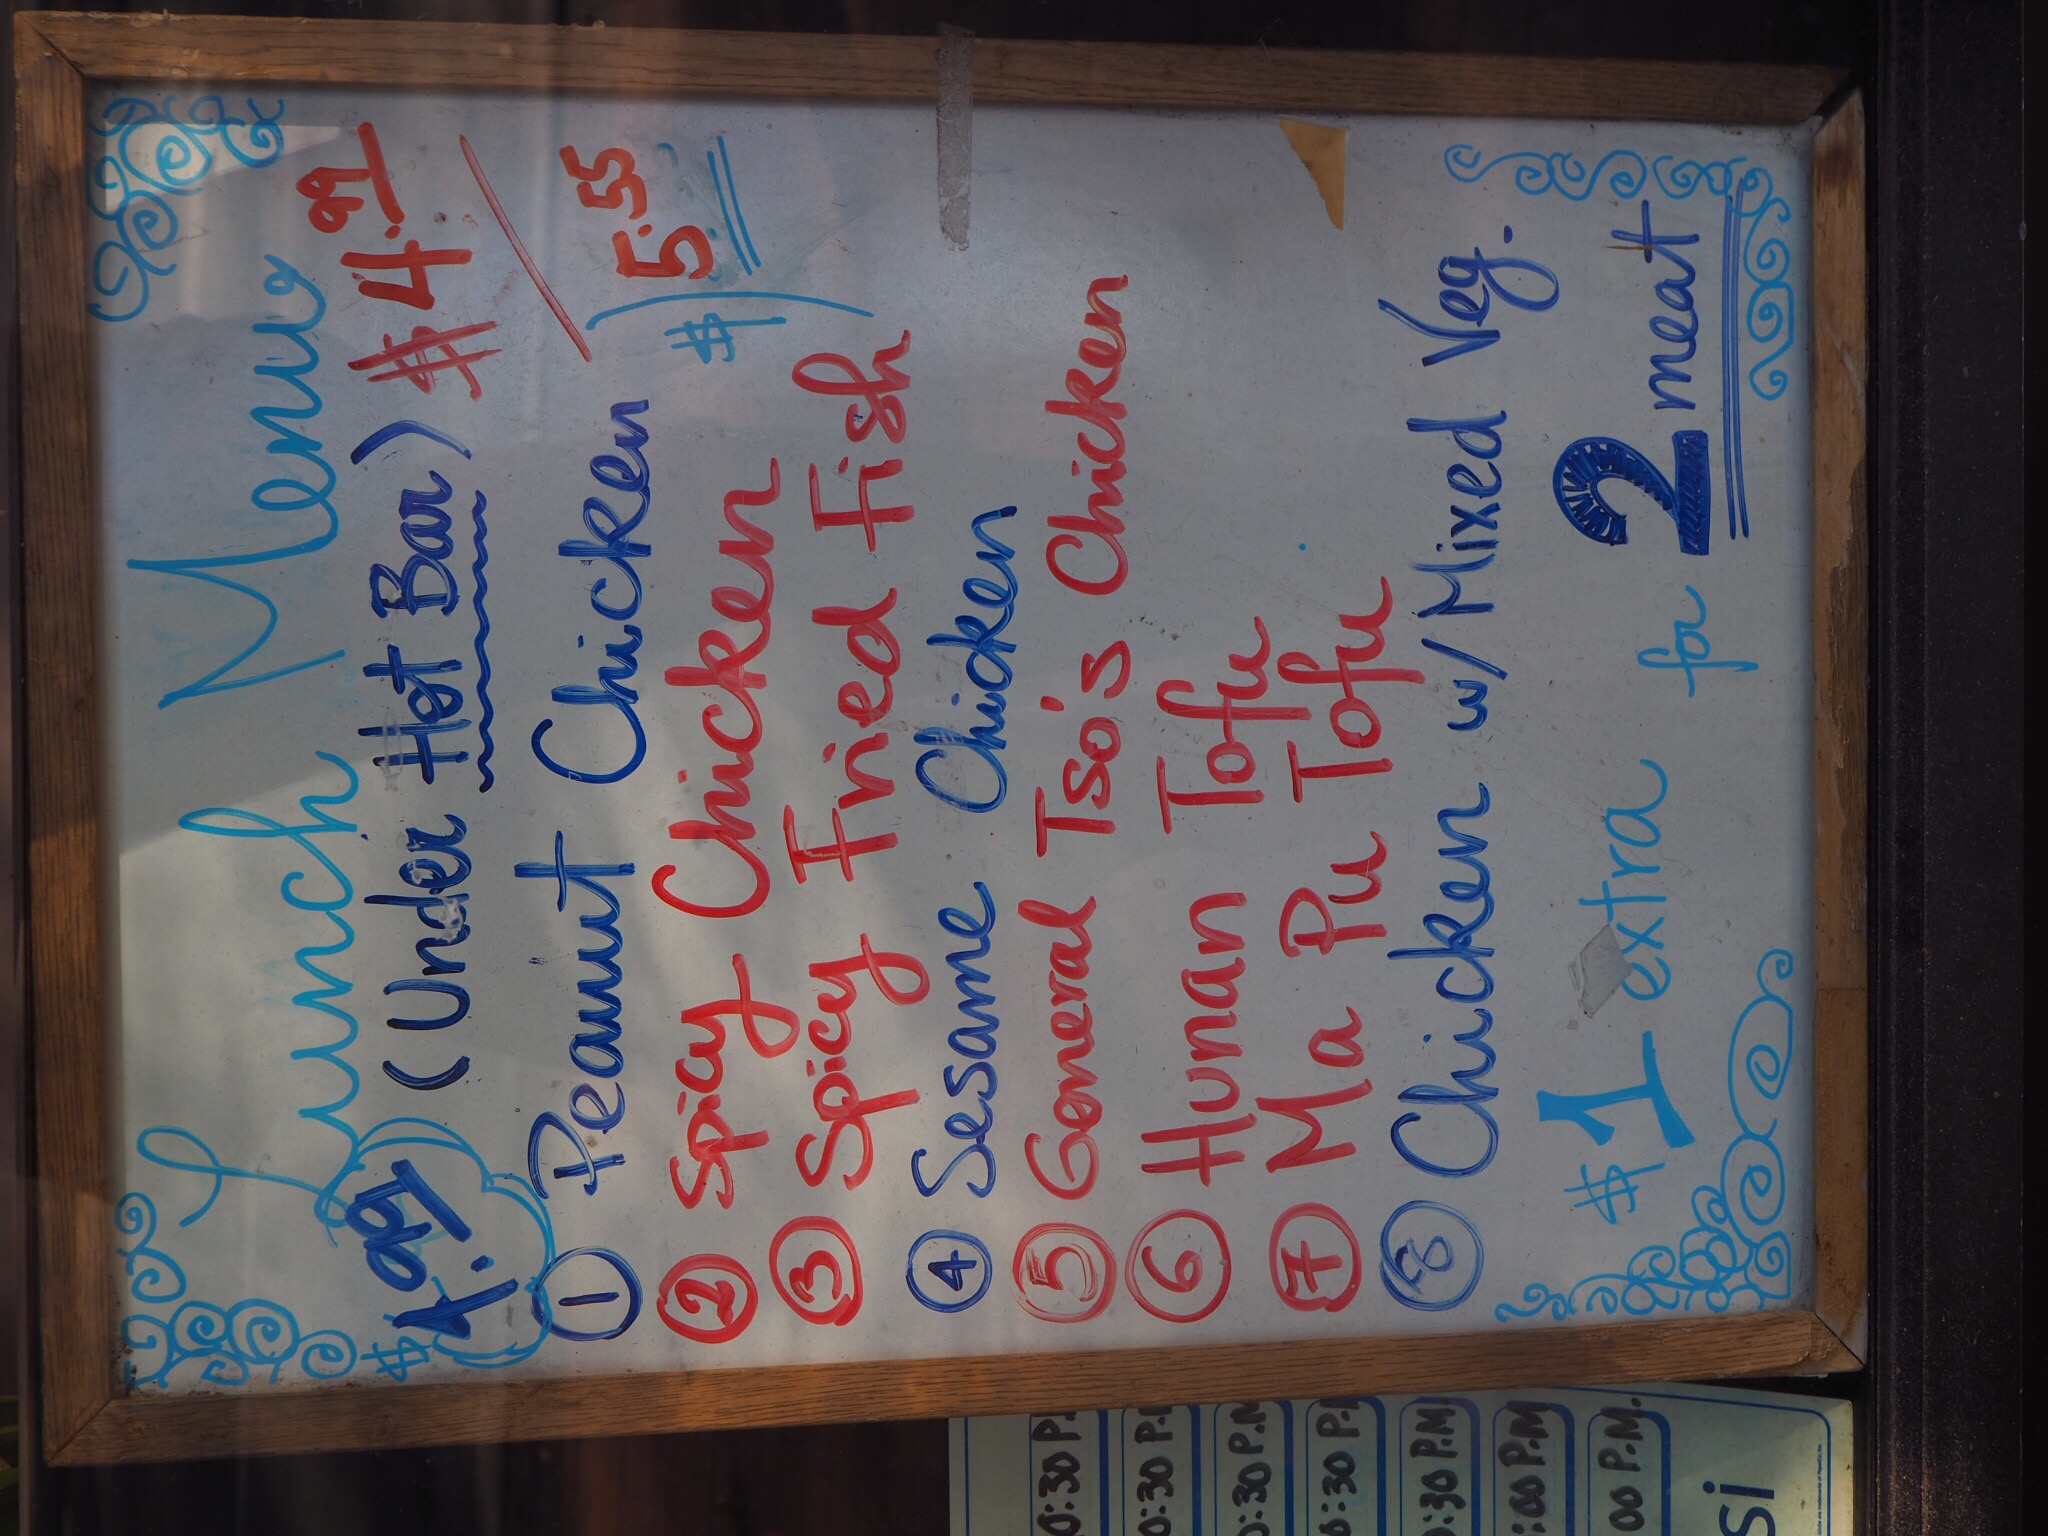 Lunch Menu
$4.99 (Under Hot Bar) $4.99
/
($5.55
1 Peanut Chicken
2 Spicy Chicken
3 Spicy Fried Fish
4 Sesame Chicken
5 General Tso's Chicken
6 Hunan Tofu
7 Ma Pu Tofu
8 Chicken w/Mixed Veg.
$1 extra for 2 meat
0:30 P.
0:30 P.
0:30 P.M
0:30 P.
0:30 P.M
:00 P.M
00 P.M.
si